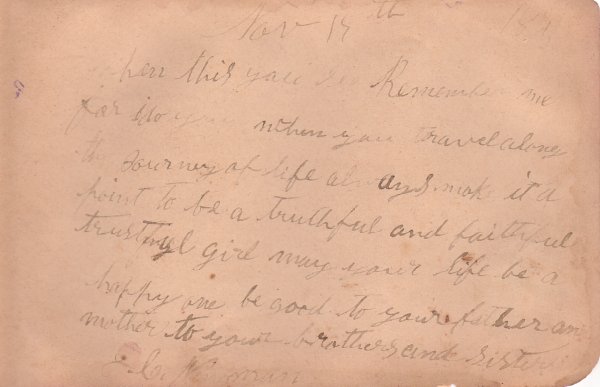 Nov 17th
When this you see Remember me
for I do you when you travel along
the journey of life always make it a
point to be a truthful and faithful
trustful girl may your life be a
happy one be good to your father and
mother to your brothers and sister